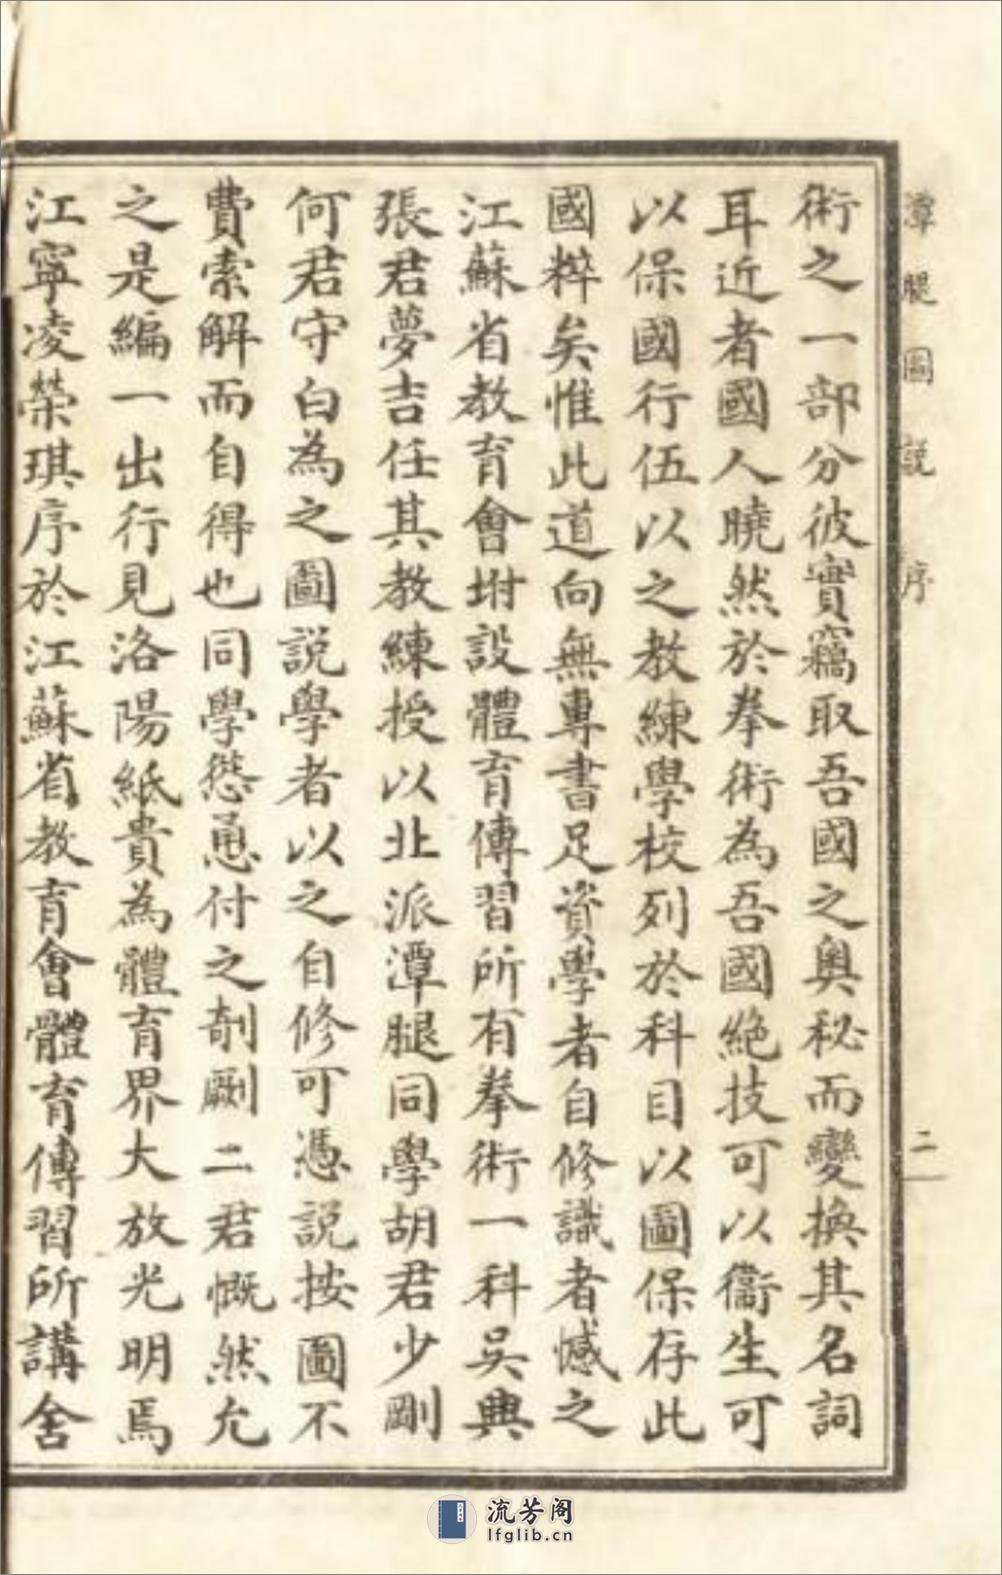 潭腿圖說 序
二
術之一部分彼實竊取吾國之奧秘而變換其名詞
耳近者國人曉然於拳術為吾國絕技可以衞生可
以保國行伍以之教練學校列於科目以圖保存此
國粹矣惟此道向無專書足資學者自修識者憾之
江蘇省教育會坿設體育傳習所有拳術一科吳興
張君夢吉任其教練授以北派潭腿同學胡君少剛
何君守白為之圖說學者以之自修可憑說按圖不
費索解而自得也同學慫恿付之剞劂二君慨然允
之是編一出行見洛陽紙貴為體育界大放光明焉
江寧凌榮琪序於江蘇省教育會體育傳習所講舍
流芳阁
lfglib.cn